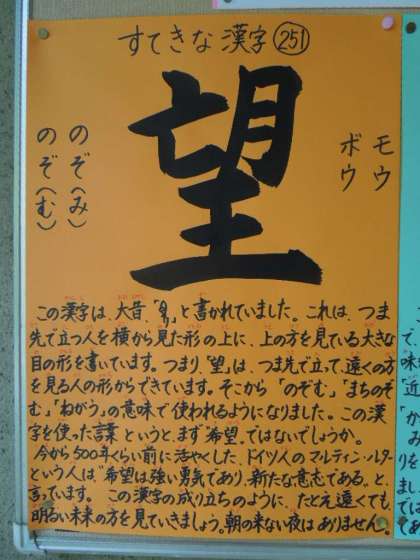 すてきな漢字 251
望
モウ
ボウ
のぞ(み)
のぞ(む)
この漢字は、大昔、「」と書かれていました。これは、つま
先で立つ人を横から見た形の上に、上の方を見ている大きな
目の形を書いています。つまり、「望」は、つま先で立って、遠くの方
を見る人の形からできています。そこから「のぞむ」、「まちのぞ
む」、「ねがう」の意味で使われるようになりました。この漢
字を使った言葉というと、まず“希望”ではないでしょうか。
今から500年くらい前に活やくした、ドイツ人のマルティン・ルター
という人は、“希望は強い勇気であり、新たな意志である。”と、
言っています。この漢字の成り立ちのように、たとえ遠くても、
明るい未来の方を見ていきましょう。朝の来ない夜はありません。
で、
味
「近
「か
み
りを
まし
では
であ